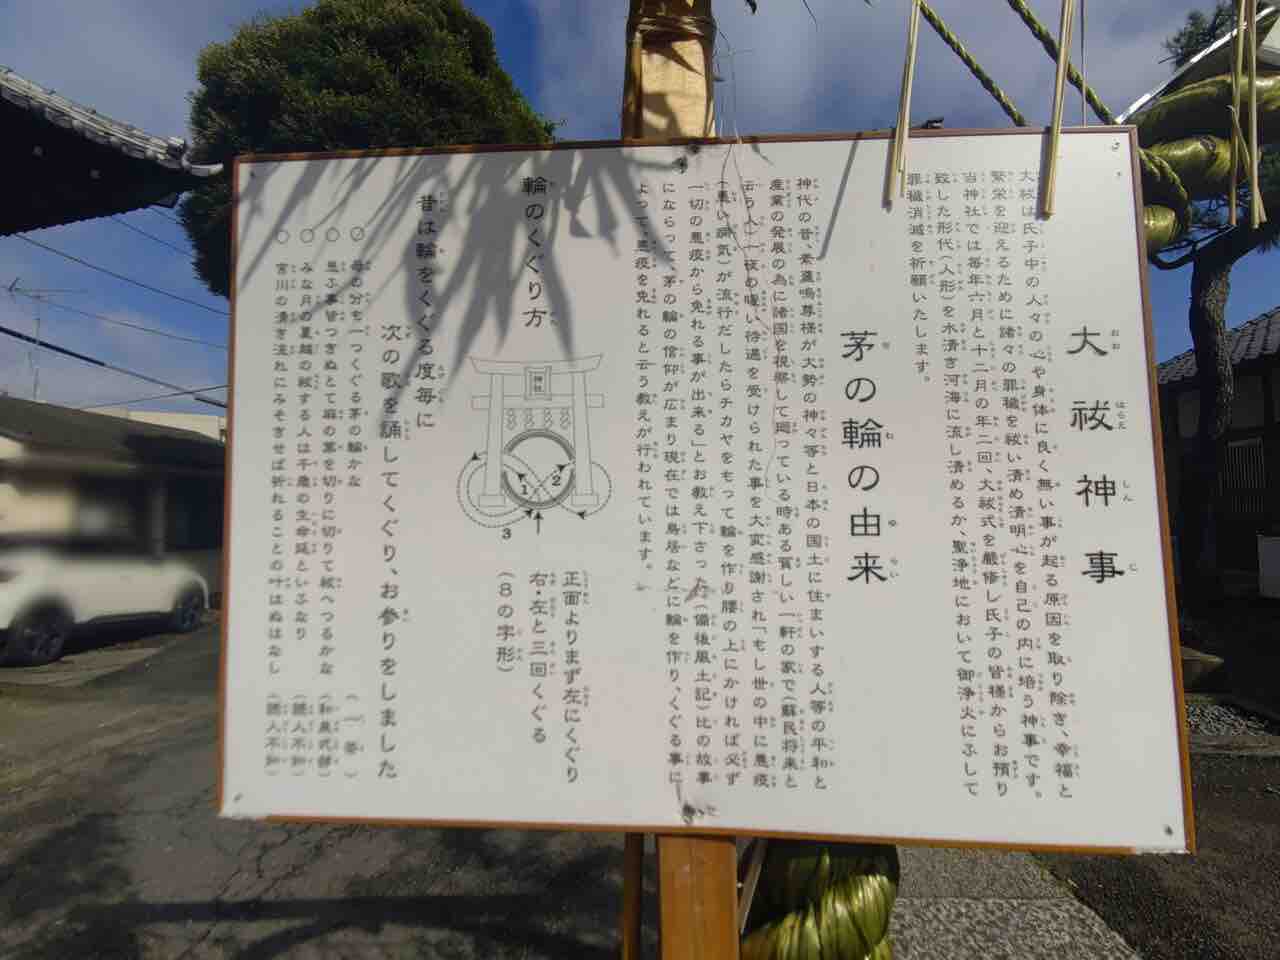 大祓神事
大祓は氏子中の人々の心や身体に良く無い事が起る原因を取り除き、幸福と
繁栄を迎えるために諸々の罪穢を祓い清め清明心を自己の内に培う神事です。
当神社では毎年六月と十二月の年二回、大祓式を厳修し氏子の皆様からお預り
致した形代(人形)を水清き河海に流し清めるか、聖浄地において御浄火にふして
罪穢消滅を祈願いたします。
茅の輪の由来
神代の昔、素盞嗚尊様が大勢の神々等と日本の国土に住まいする人等の平和と
産業の発展の為に諸国を視察して廻っている時ある貧しい一軒の家で(蘇民将来と
云う人)一夜の暖い待遇を受けられた事を大変感謝され「もし世の中に悪疫
(悪い病気)が流行だしたらチカヤをもって輪を作り腰の上にかければ必ず
一切の悪疫から免れる事が出来る」とお教え下さった(備後風土記)比の故事
にならって、茅の輪の信仰が広まり現在では鳥居などに輪を作り、くぐる事に
よって、悪疫を免れると云う教えが行われています。
輪のくぐり方
神社
1
2
3
正面よりまず左にくぐり
右・左と三回くぐる
(8の字形)
昔は輪をくぐる度毎に
次の歌を誦してくぐり、お参りをしました
○ 母の分も一つくぐる茅の輪かな (一茶)
○ 思ふ事皆つきぬとて麻の葉を切りに切りて祓へつるかな (和泉式部)
○ みな月の夏越の祓する人は千歳の生命延といふなり (読人不知)
○ 宮川の清き流れにみそぎせば祈れることの叶はぬはなし (読人不知)